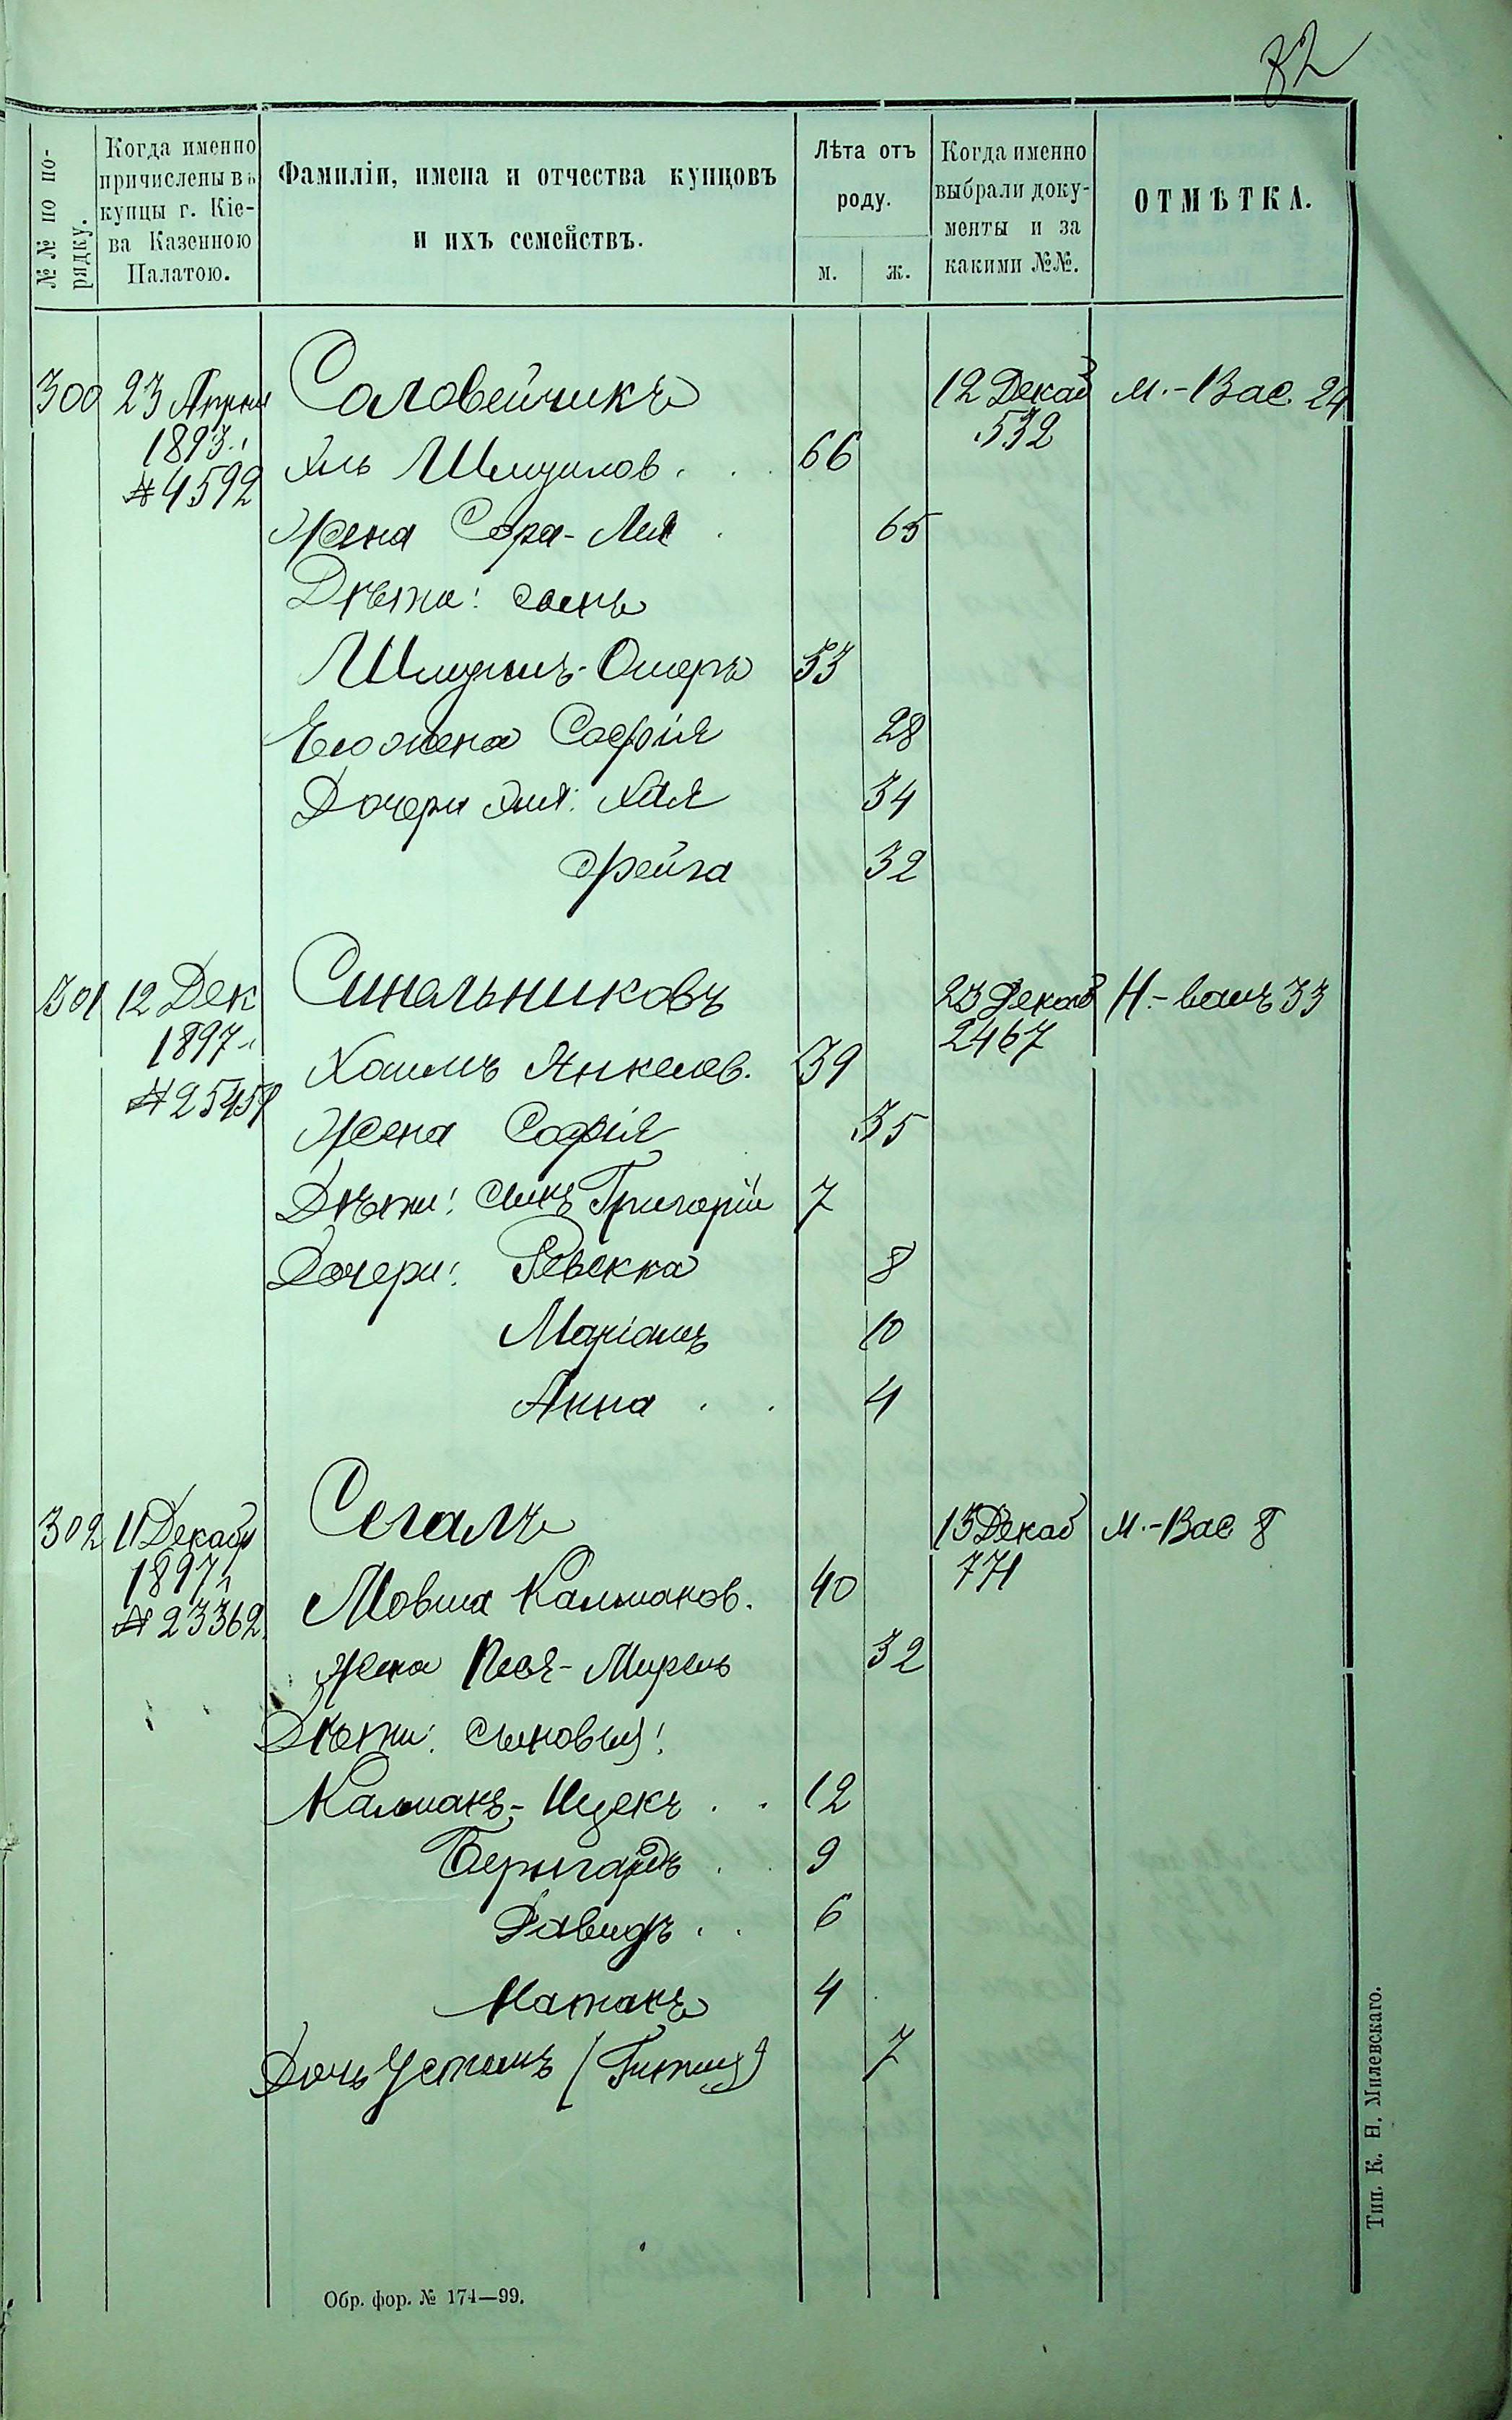 82
№№ по по-
рядку.
Когда именно
причислены въ
купцы г. Кіе-
ва Казенною
Палатою.
Фамиліи, имена и отчества купцовъ
и ихъ семействъ.
Лѣта отъ
роду.
м. ж.
Когда именно
выбрали доку-
менты и за
какими №№.
ОТМѢТКА.
300 23 Апрѣля Соловейчикъ 12 Декаб М.-Вас. 24
1893 г. 532
№ 4592 Эль Шмуилов. 66
Жена Сора-Лея 65
Дѣти: сынъ
Шмуилъ-Ошеръ 33
Его жена Софія 28
Дочери Эля: Хая 34
Фейга 32
301 12 Дек Синельниковъ 23 Декаб Н.-валъ 33
1897 г. 2467
Хаимъ Янкелев. 39
Жена Софія 35
Дѣти: сынъ Григорій 7
Дочери: Ревекка 8
Маріамъ 10
Анна 4
302 11 Декабр Сегалъ 13 Декаб М.-Вас 8
1897 г. 771
№ 23362 Мовша Калманов. 40
Жена Песя-Мирель 32
Дѣти: сыновья:
Калманъ-Ицекъ 12
Бернгардъ 9
Давидъ 6
Натанъ 4
Дочь 7
Обр. фор. № 174—99.
Тип. К. Н. Милевскаго.